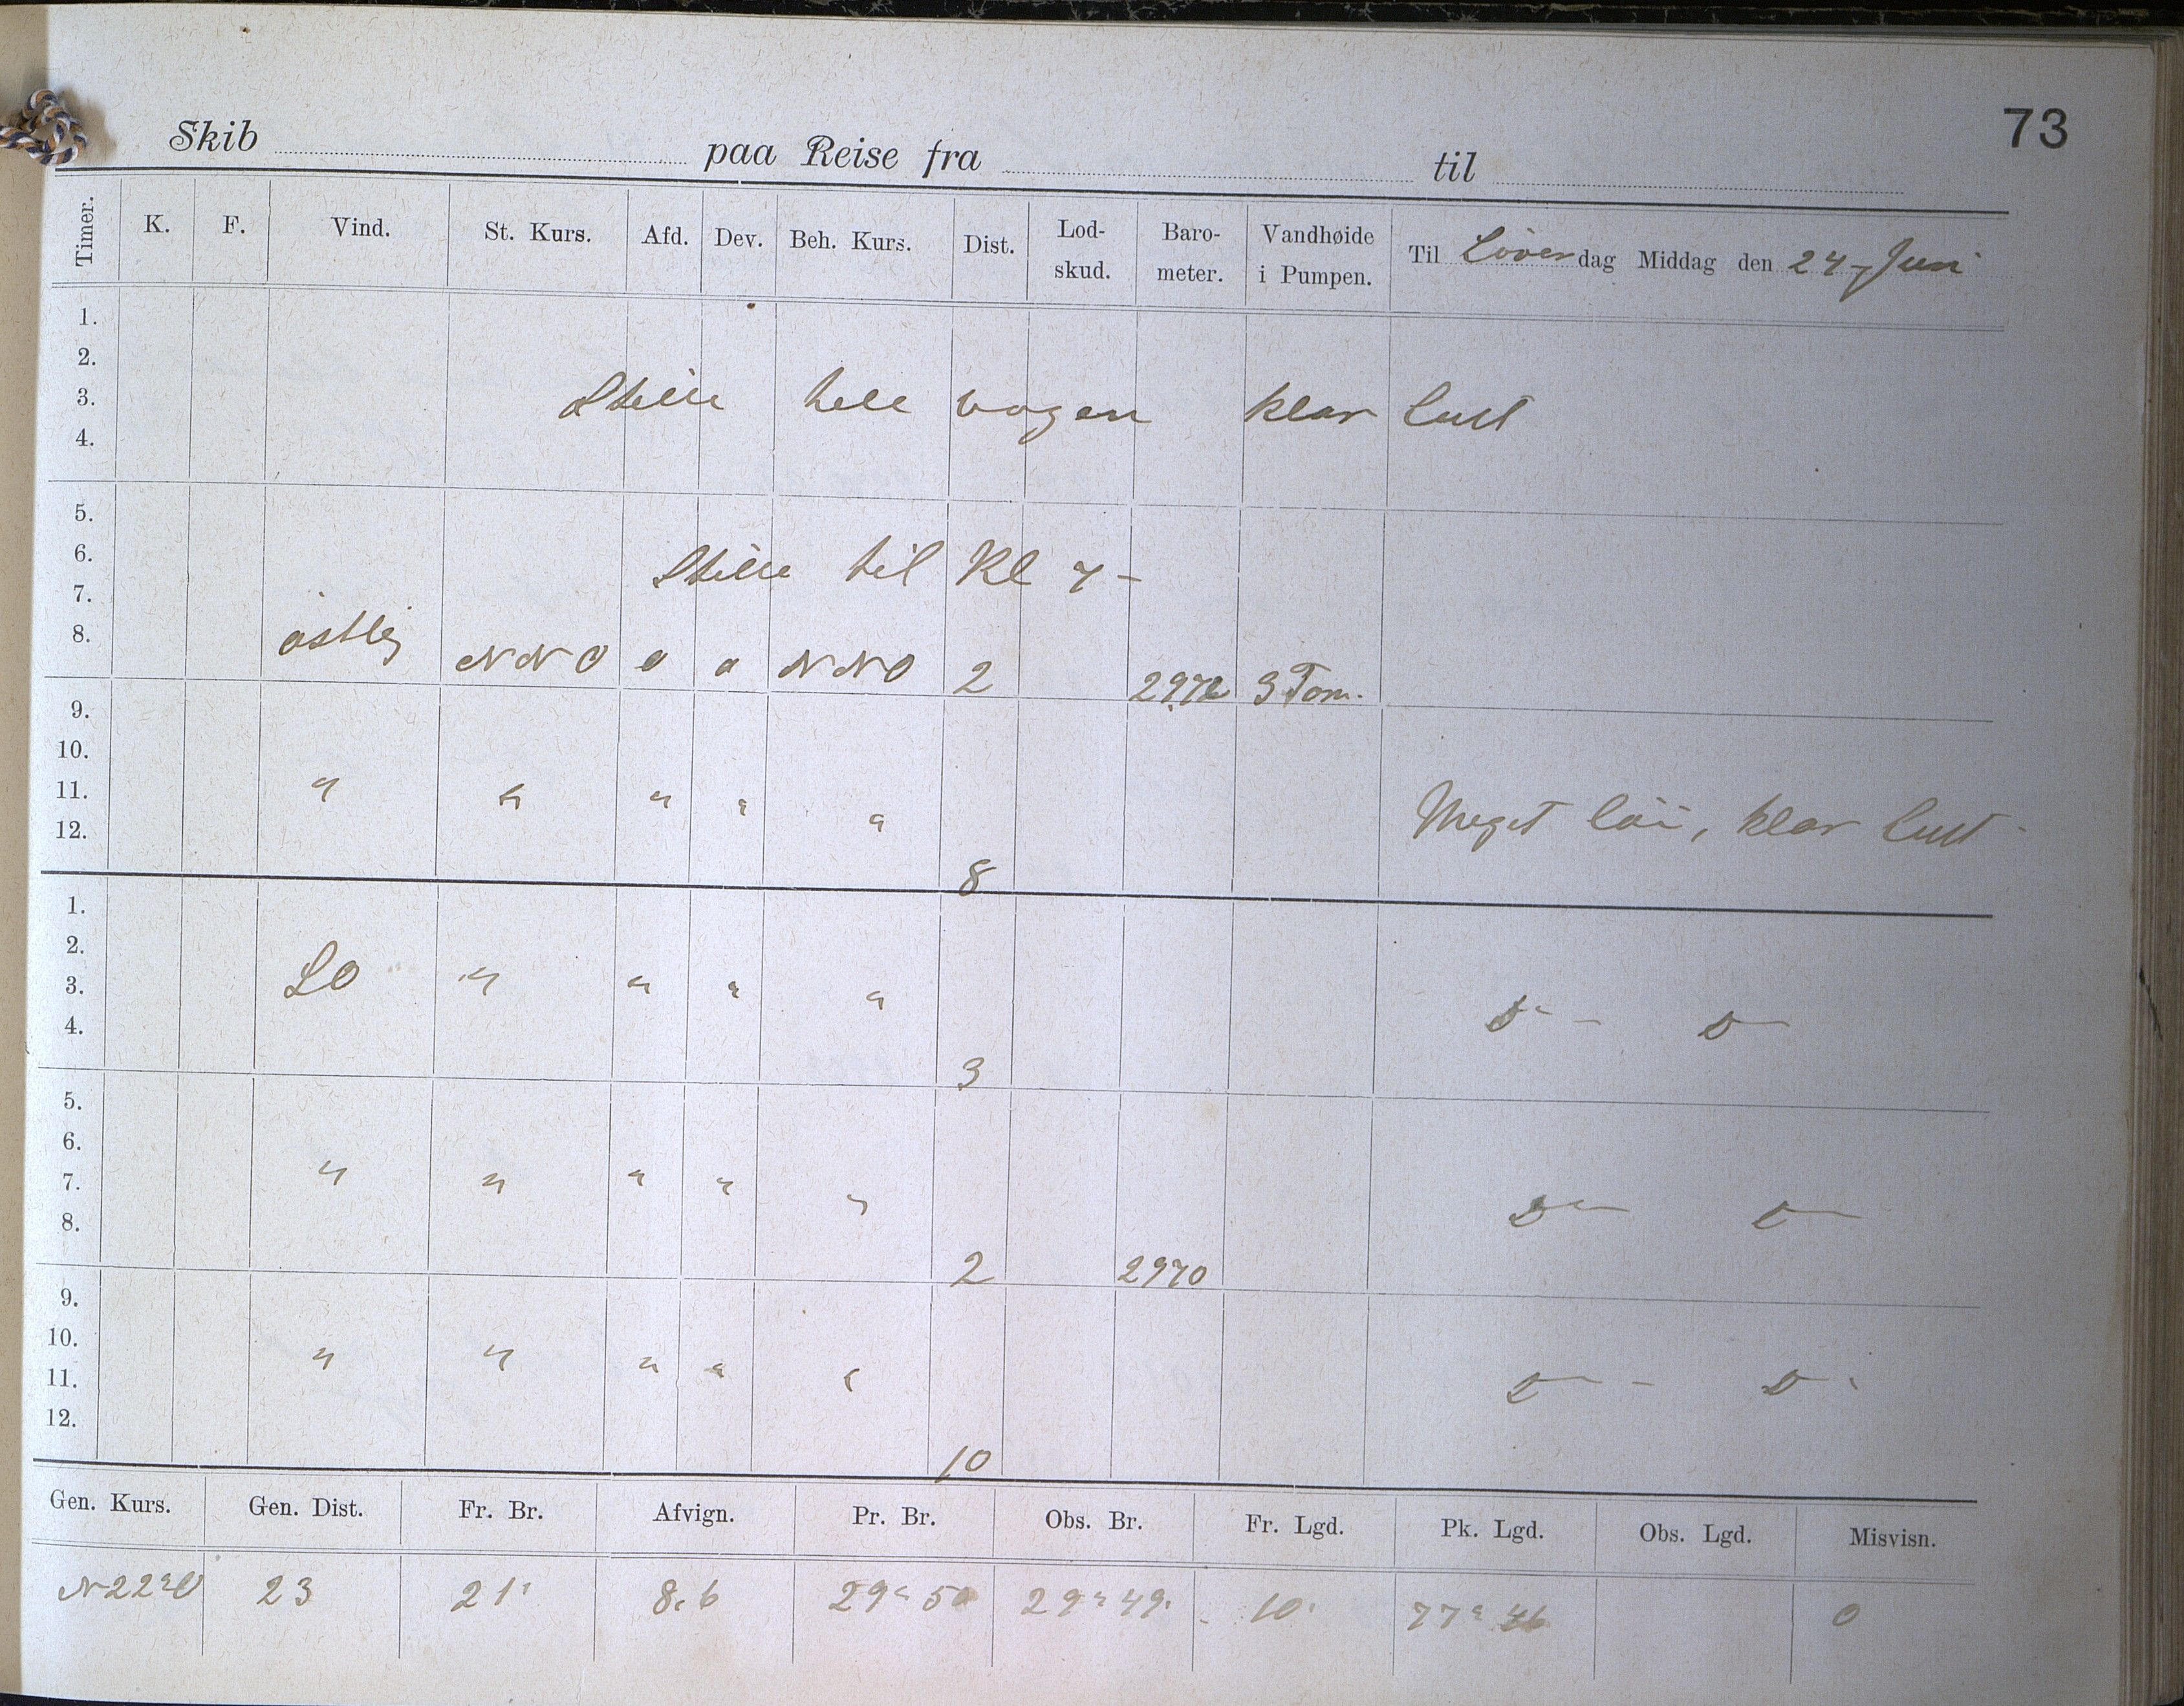 73
Skib paa Reise fra til
Timer. K. F. Vind. St. Kurs. Afd. Dev. Beh. Kurs. Dist. Lod-skud. Baro-meter. Vandhøide i Pumpen. Til Löverdag Middag den 24 Juni
1.
2.
3. Stille hele vagen klar luft
4.
5.
6. Stille til Kl 7 –
7.
8. östlig NNO 0 0 NNO 2 2972 3 Tom.
9.
10.
11. " " " " "
12. 8 Meget löi, klar luft
1.
2.
3. SO " " " "
4. 3 D– – D–
5.
6.
7. " " " " "
8. 2 2970 D– D–
9.
10.
11. " " " " " D– – D–
12. 10
Gen. Kurs. Gen. Dist. Fr. Br. Afvign. Pr. Br. Obs. Br. Fr. Lgd. Pk. Lgd. Obs. Lgd. Misvisn.
N22°O 23 21' 8.6 29° 50 29° 49' 10' 77° 46 0